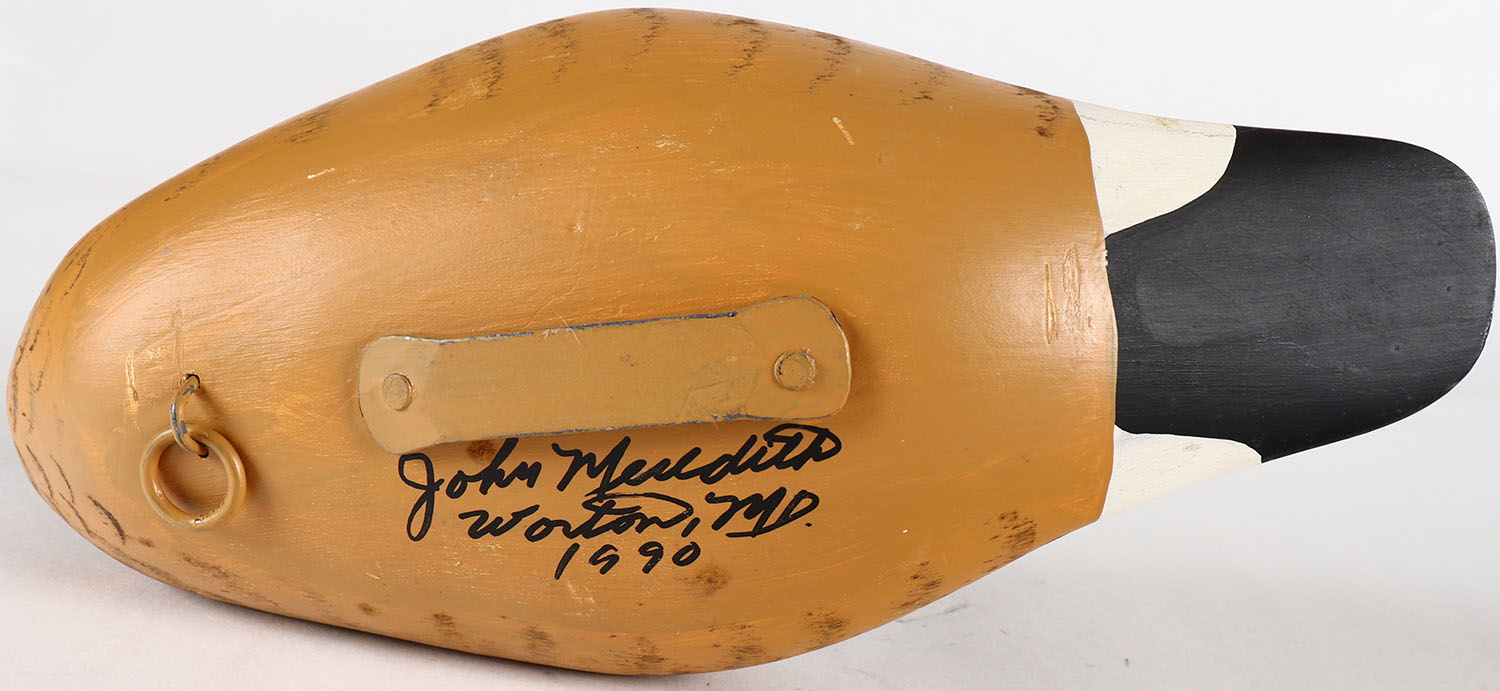 John Meredith
Worton, MD.
1990